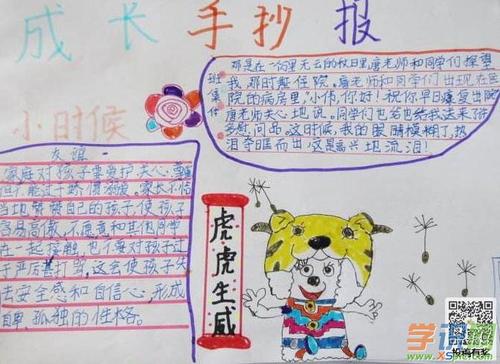 成长手抄报
班集体
那是在一个万里无云的秋日里,唐老师和同学们探望
我,那时整住院。唐老师和同学们出现在医
院的病房里,小伟,你好!祝你早日康复出院
唐老师关心地说。同学们也给我送来许
多慰问品,这时候,我的眼睛模糊了,热
泪夺眶而出这是高兴地流泪!
小时候
友谊
家庭对孩子要爱护关心、
但不能过于娇惯溺爱。家长不恰
当地赞自己的孩子,使孩子
容易高傲,不愿意和其他同学
在一起接触。也不要对孩子过
于严厉甚打骂,这会使孩子失
去安全感和自信心,形成
自卑、孤独的性格。
虎虎生威
投稿有奖